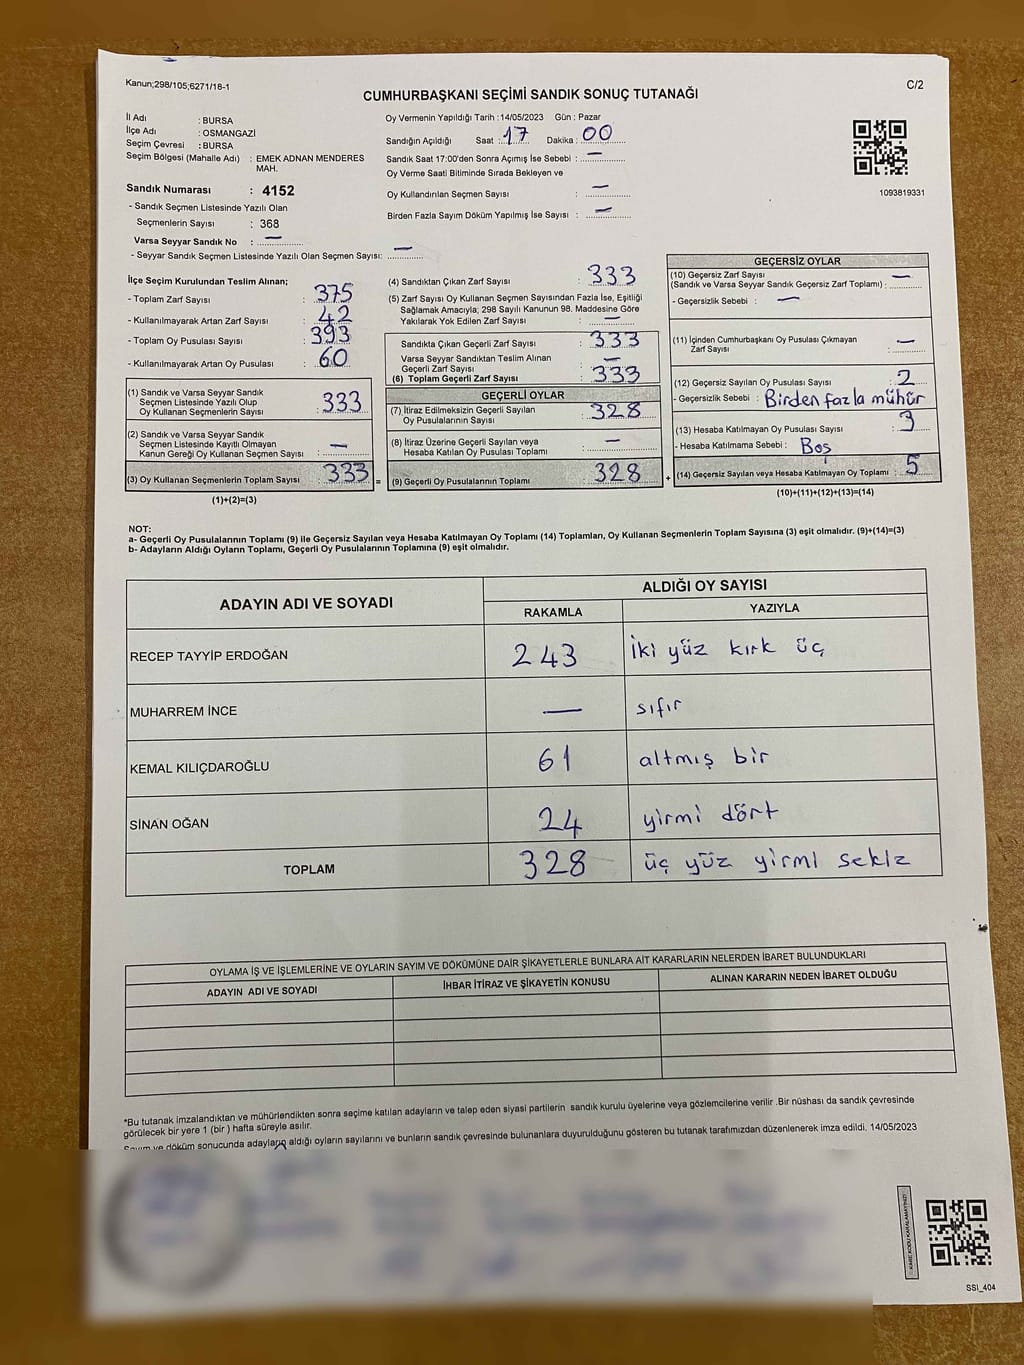 Kanun;298/105;6271/16-1
C/2
CUMHURBAŞKANI SEÇİMİ SANDIK SONUÇ TUTANAĞI
İl Adı : BURSA
İlçe Adı : OSMANGAZİ
Seçim Çevresi : BURSA
Seçim Bölgesi (Mahalle Adı) : EMEK ADNAN MENDERES
MAH.
Sandık Numarası : 4152
- Sandık Seçmen Listesinde Yazılı Olan
Seçmenlerin Sayısı : 368
Varsa Seyyar Sandık No : —
- Seyyar Sandık Seçmen Listesinde Yazılı Olan Seçmen Sayısı: —
Oy Vermenin Yapıldığı Tarih : 14/05/2023 Gün : Pazar
Sandığın Açıldığı Saat : 17 Dakika : 00
Sandık Saat 17:00'den Sonra Açımış İse Sebebi : —
Oy Verme Saati Bitiminde Sırada Bekleyen ve
Oy Kullandırılan Seçmen Sayısı : —
Birden Fazla Sayım Döküm Yapılmış İse Sayısı : —
1093819331
İlçe Seçim Kurulundan Teslim Alınan;
- Toplam Zarf Sayısı : 375
- Kullanılmayarak Artan Zarf Sayısı : 42
- Toplam Oy Pusulası Sayısı : 393
- Kullanılmayarak Artan Oy Pusulası : 60
(1) Sandık ve Varsa Seyyar Sandık
Seçmen Listesinde Yazılı Olup
Oy Kullanan Seçmenlerin Sayısı : 333
(2) Sandık ve Varsa Seyyar Sandık
Seçmen Listesinde Kayıtlı Olmayan
Kanun Gereği Oy Kullanan Seçmen Sayısı : —
(3) Oy Kullanan Seçmenlerin Toplam Sayısı : 333 =
(1)+(2)=(3)
(4) Sandıktan Çıkan Zarf Sayısı : 333
(5) Zarf Sayısı Oy Kullanan Seçmen Sayısından Fazla İse, Eşitliği
Sağlamak Amacıyla; 298 Sayılı Kanunun 98. Maddesine Göre
Yakılarak Yok Edilen Zarf Sayısı : —
Sandıkta Çıkan Geçerli Zarf Sayısı : 333
Varsa Seyyar Sandıktan Teslim Alınan
Geçerli Zarf Sayısı : —
(6) Toplam Geçerli Zarf Sayısı : 333
GEÇERLİ OYLAR
(7) İtiraz Edilmeksizin Geçerli Sayılan
Oy Pusulalarının Sayısı : 328
(8) İtiraz Üzerine Geçerli Sayılan veya
Hesaba Katılan Oy Pusulası Toplamı : —
(9) Geçerli Oy Pusulalarının Toplamı : 328 +
GEÇERSİZ OYLAR
(10) Geçersiz Zarf Sayısı
(Sandık ve Varsa Seyyar Sandık Geçersiz Zarf Toplamı) : —
- Geçersizlik Sebebi : —
(11) İçinden Cumhurbaşkanı Oy Pusulası Çıkmayan
Zarf Sayısı : —
(12) Geçersiz Sayılan Oy Pusulası Sayısı : 2
- Geçersizlik Sebebi : Birden fazla mühür
(13) Hesaba Katılmayan Oy Pusulası Sayısı : 3
- Hesaba Katılmama Sebebi : Boş
(14) Geçersiz Sayılan veya Hesaba Katılmayan Oy Toplamı : 5
(10)+(11)+(12)+(13)=(14)
NOT:
a- Geçerli Oy Pusulalarının Toplamı (9) ile Geçersiz Sayılan veya Hesaba Katılmayan Oy Toplamı (14) Toplamları, Oy Kullanan Seçmenlerin Toplam Sayısına (3) eşit olmalıdır. (9)+(14)=(3)
b- Adayların Aldığı Oyların Toplamı, Geçerli Oy Pusulalarının Toplamına (9) eşit olmalıdır.
ADAYIN ADI VE SOYADI
ALDIĞI OY SAYISI
RAKAMLA YAZIYLA
RECEP TAYYİP ERDOĞAN 243 iki yüz kırk üç
MUHARREM İNCE — sıfır
KEMAL KILIÇDAROĞLU 61 altmış bir
SİNAN OĞAN 24 yirmi dört
TOPLAM 328 üç yüz yirmi sekiz
OYLAMA İŞ VE İŞLEMLERİNE VE OYLARIN SAYIM VE DÖKÜMÜNE DAİR ŞİKAYETLERLE BUNLARA AİT KARARLARIN NELERDEN İBARET BULUNDUKLARI
ADAYIN ADI VE SOYADI İHBAR İTİRAZ VE ŞİKAYETİN KONUSU ALINAN KARARIN NEDEN İBARET OLDUĞU
*Bu tutanak imzalandıktan ve mühürlendikten sonra seçime katılan adayların ve talep eden siyasi partilerin sandık kurulu üyelerine veya gözlemcilerine verilir .Bir nüshası da sandık çevresinde
görülecek bir yere 1 (bir ) hafta süreyle asılır.
Sayım ve döküm sonucunda adayların aldığı oyların sayılarını ve bunların sandık çevresinde bulunanlara duyurulduğunu gösteren bu tutanak tarafımızdan düzenlenerek imza edildi. 14/05/2023
KARE KODU KARALAMAYINIZ!
SSI_404